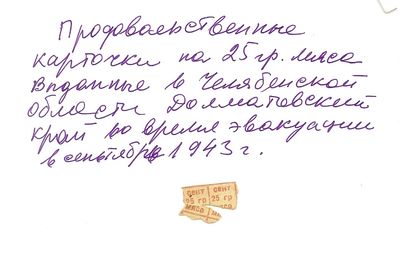 Продовольственные
карточки на 25 гр. мяса
Выданные в Челябенской
области Долматовский
край во время эвакуации
в сентябре 1943 г.
СЕНТ СЕНТ
25 гр 25 гр
МЯСО М